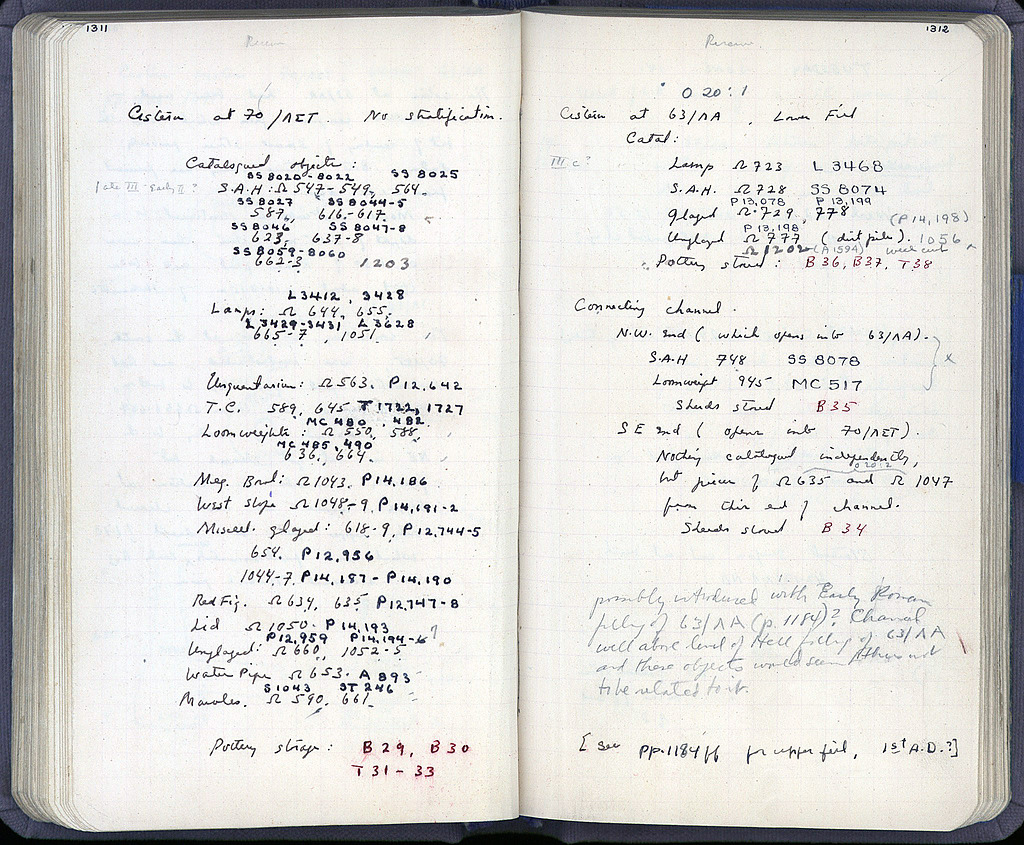 1311
Cistern at 70/ΛΕΤ. No stratification.
Catalogued objects:
SS 8020-8022 SS 8025
late III - Early II ? S.A.H: Ω 547-549, 564.
SS 8027 SS 8044-5
587, 616-617.
SS 8046 SS 8047-8
623, 637-8
SS 8059-8060
662-3 1203
L3412, 3428
Lamps: Ω 644, 655,
L3429-3431 L3628
665-7, 1051
Unguentarium: Ω 563. P12,642
T.C. 589, 645 T1722, 1727
MC 480, 482.
Loomweights: Ω 550, 588,
MC 485, 490
636, 664.
Meg. Bowl: Ω 1043. P14,186
West slope Ω 1048-9, P14,191-2
Miscel. glazed: 618-9, P12,744-5
654. P12,956
1044-7, P14,187 - P14,190
Red Fig. Ω 634, 635 P12,747-8
Lid Ω 1050. P14,193
P12,959 P14,194-6 ?
Unglazed: Ω 660, 1052-5
Water Pipe Ω 653. A 893
S1043 ST 246
Marbles. Ω 590, 661.
Pottery storage: B 29, B 30
T 31-33
1312
O 20:1
Cistern at 63/ΛΑ, Lower Fill
Catal:
III c? Lamp Ω 723 L 3468
S.A.H. Ω 728 SS 8074
P13,078 P13,199
Glazed Ω 729, 778 (P14,198)
P13,198
Unglazed Ω 777 (dist. piler). 1056
Ω 1202 (A 1594) well curb
Pottery stored: B36, B37, T38
Connecting channel.
N.W. end (which opens into 63/ΛΑ).
S.A.H 748 SS 8078
Loomweight 945 MC 517
Sherds stored B35
S E end (opens into 70/ΛΕΤ).
Nothing catalogued independently,
O 20:2
but pieces of Ω 635 and Ω 1047
from this end of channel.
Sherds stored B 34
possibly introduced with Early Roman
filling of 63/ΛΑ (p. 1184)? Channel
well above level of Hell filling of 63/ΛΑ
and these objects would seem thus not
to be related to it.
[see pp. 1184 ff for upper fill, 1st A.D.?]